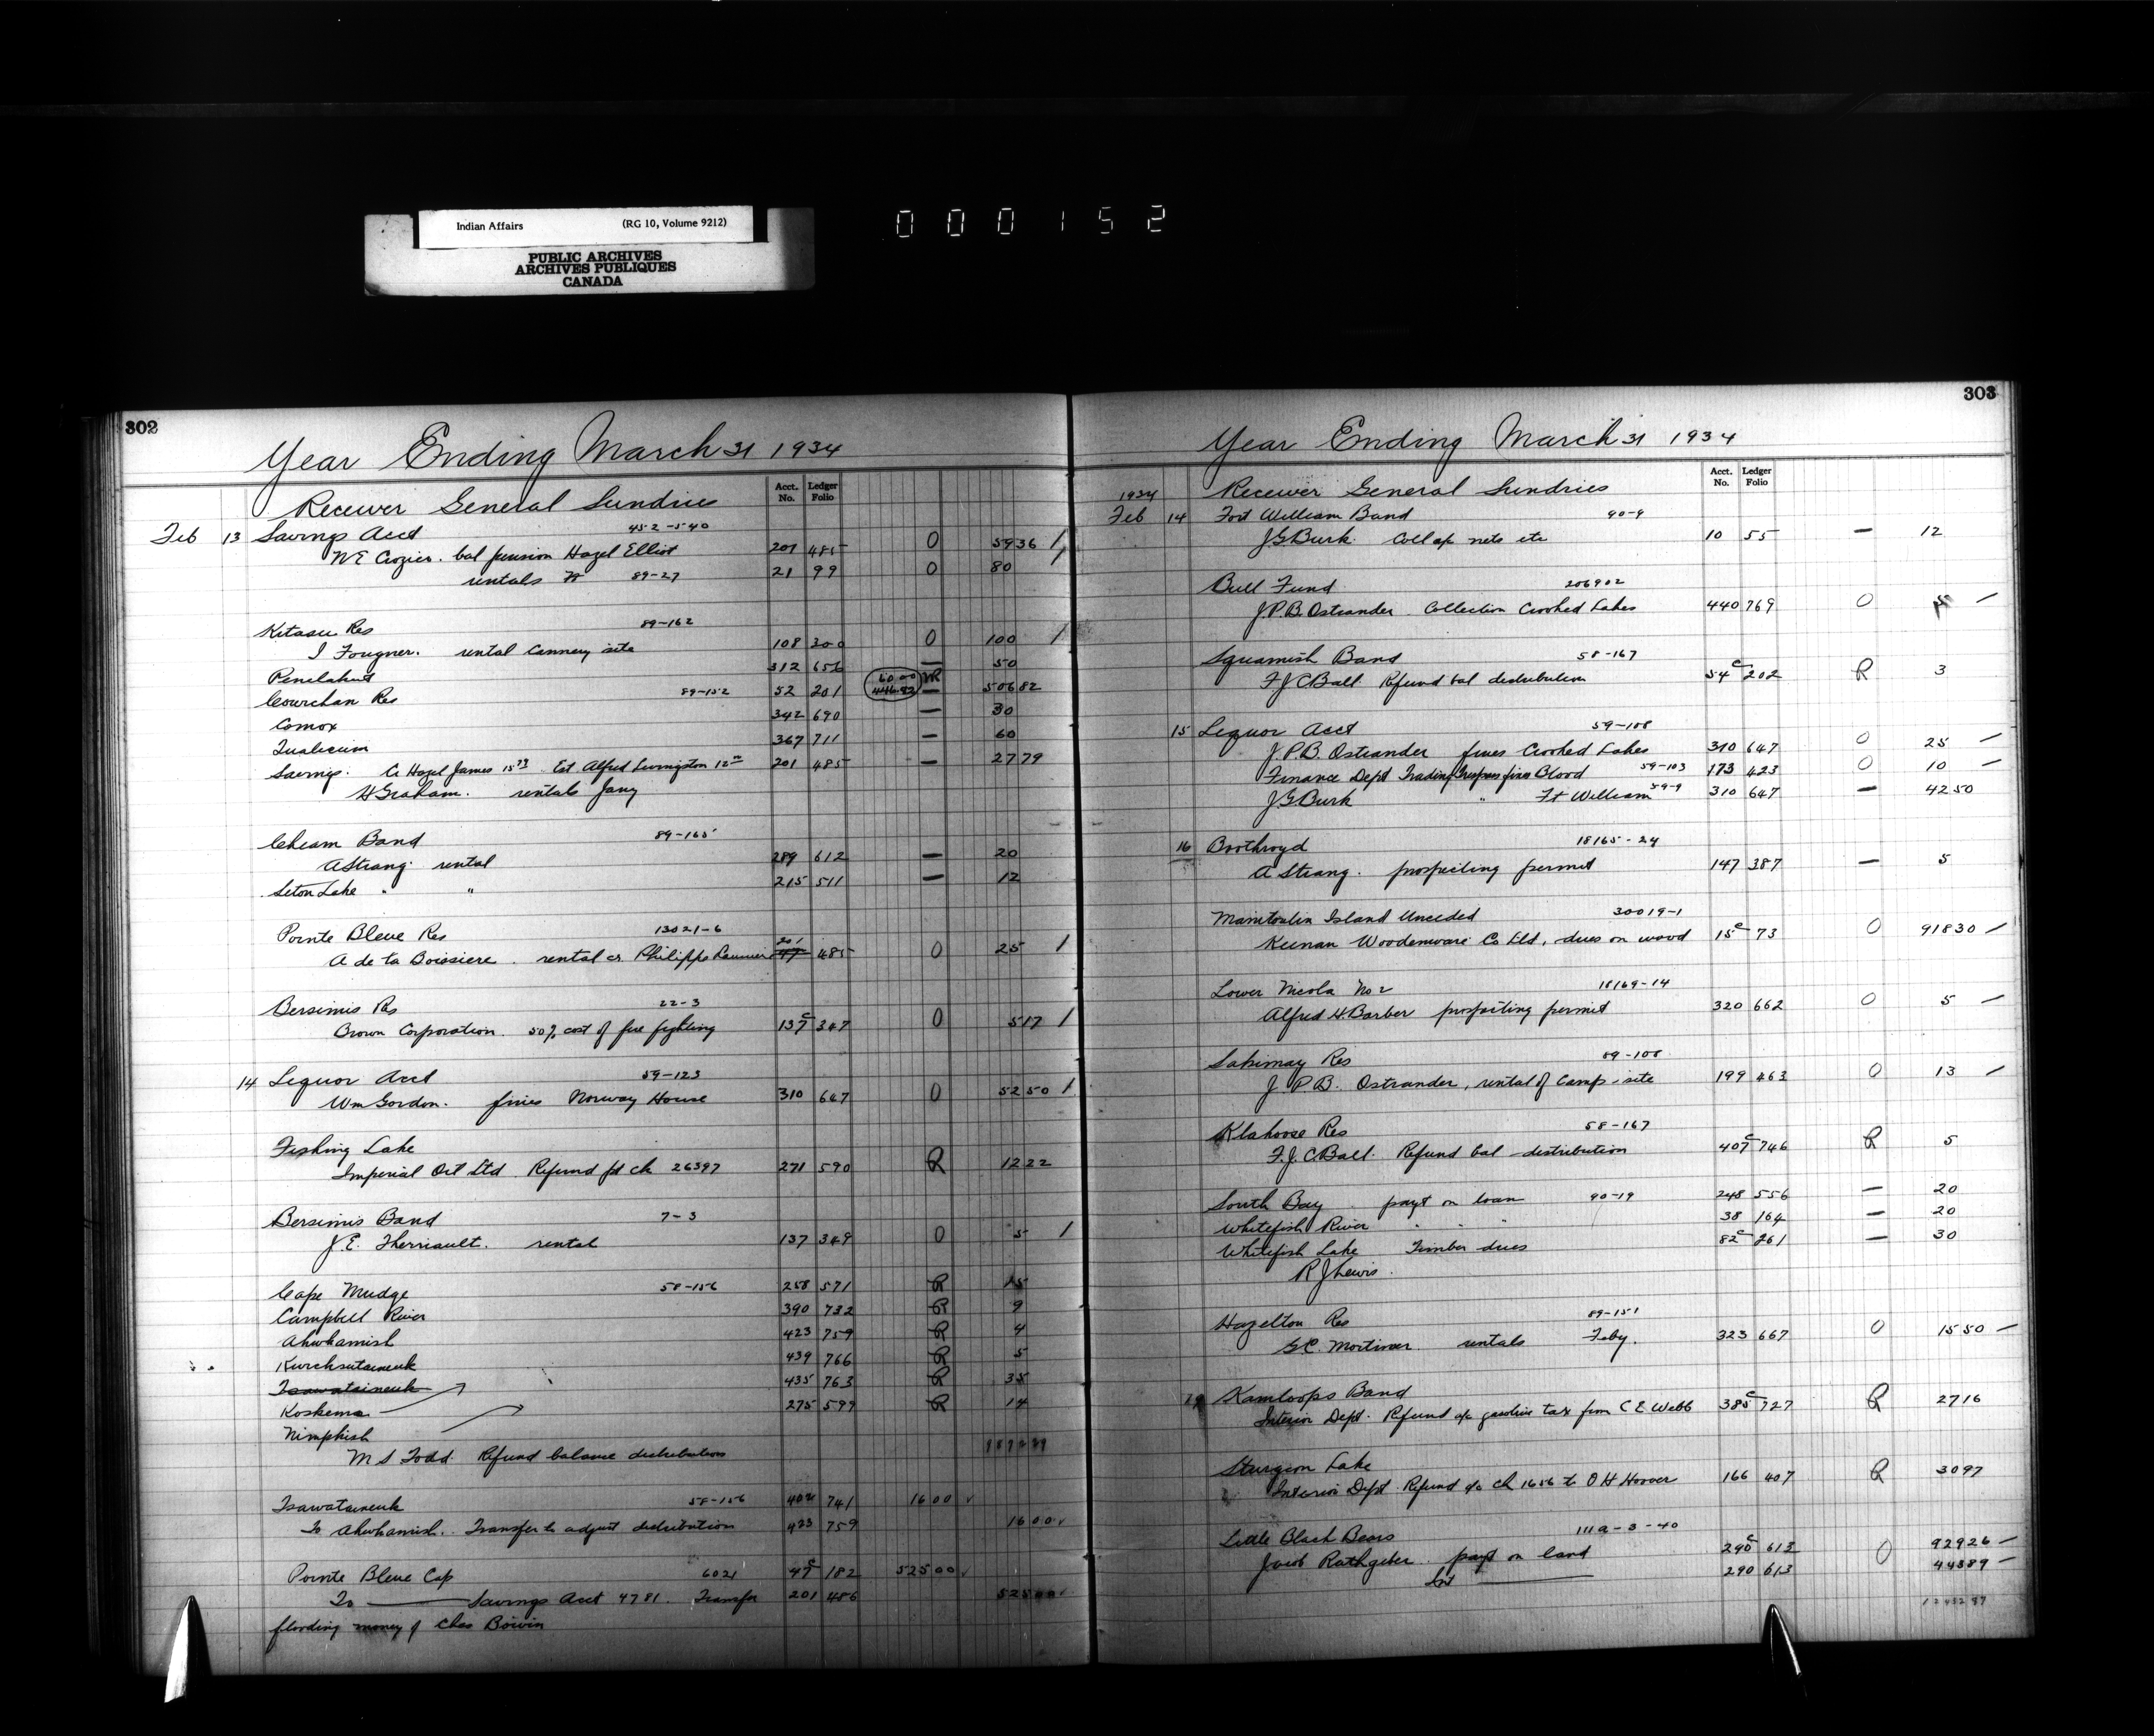 Indian Affairs (RG 10, Volume 9212)
PUBLIC ARCHIVES
ARCHIVES PUBLIQUES
CANADA
000152
302
Year Ending March 31 1934
Acct. No. Ledger Folio
Receiver General Sundries
Feb 13 Savings Acct 452-540
W E Crozier. bal pension Hazel Elliot 201 485 O 5936 /
rentals 89-27 21 99 O 80 /
Kitasu Res 89-162
I Fougner. rental Cannery site 108 300 O 100 /
Penelakut 312 656 — 50
Cowichan Res 89-152 52 201 6000 446.82 R — 50682
Comox 342 690 — 30
Qualicum 367 711 — 60
Savings. Cr Hazel James 15 Est Alfred Livingston 12 201 485 — 2779
H Graham. rentals Jany
Cheam Band 89-165
A Strang rental 289 612 — 20
Seton Lake " " 215 511 — 12
Pointe Bleue Res 13021-6
A de la Boissiere. rental cr Philippe 201 47 485 O 25 /
Bersimis Res 22-3
Brown Corporation. 50% cost of fire fighting 137c 347 O 517 /
14 Liquor Acct 59-123
Wm Gordon. fines Norway House 310 647 O 5250 /
Fishing Lake
Imperial Oil Ltd Refund pt ch 26397 271 590 R 1222
Bersimis Band 7-3
J.E. Therriault. rental 137 349 O 5 /
Cape Mudge 58-156 258 571 R 15
Campbell River 390 732 R 9
Ahwhamish 423 759 R 4
Kwicksutaineuk 439 766 R 5
Tsawataineuk 435 763 R 35
Koskemo 275 599 R 14
Nimpkish
M S Todd. Refund balance distribution
Tsawataineuk 58-156 402 741 1600 ✓
To Ahwhamish. Transfer to adjust distribution 423 759 1600 ✓
Pointe Bleue Cap 6021 47c 182 52500 ✓
To ——— Savings Acct 4781. Transfer 201 486 52500 ✓
flooding money of Chas Boivin
303
Year Ending March 31 1934
Acct. No. Ledger Folio
1934 Receiver General Sundries
Feb 14 Fort William Band 90-9
J G Burk. Coll ap nets etc 10 55 — 12
Bull Fund 206902
J.P.B. Ostrander. Collection Crooked Lakes 440 769 O 5 /
Squamish Band 58-167
F J C Ball Refund bal distribution 54c 202 R 3
15 Liquor Acct 59-108
J.P.B. Ostrander fines Crooked Lakes 310 647 O 25 —
Finance Dept Trading Trespass fines Blood 59-103 173 423 O 10 —
J G Burk " Ft William 59-9 310 647 — 4250
16 Boothroyd 18165-24
A Strang. prospecting permit 147 387 — 5
Manitoulin Island Unceded 30019-1
Keenan Woodenware Co Ltd, dues on wood 15c 73 O 91830 /
Lower Nicola No 2 18169-14
Alfred H. Barber prospecting permit 320 662 O 5 —
Sakimay Res 89-108
J.P.B. Ostrander, rental of Camp-site 199 463 O 13 /
Klahoose Res 58-167
F.J.C. Ball. Refund bal distribution 407c 746 R 5
South Bay. payt on loan 90-19 248 556 — 20
Whitefish River " " " 38 164 — 20
Whitefish Lake Timber dues 82c 261 — 30
R J Lewis.
Hazelton Res 89-151
G.C. Mortimer rentals Feby. 323 667 O 1550 —
Kamloops Band
Interior Dept. Refund a/c gasoline tax from C E Webb 385c 727 R 2716
Sturgeon Lake
Interior Dept. Refund a/c ch 1656 to O H Hoover 166 407 R 3097
Little Black Bears 111a-3-40
Jacob Rathgeber. payt on land 290c 613 O 92926 —
Int ——— 290 613 44589 —